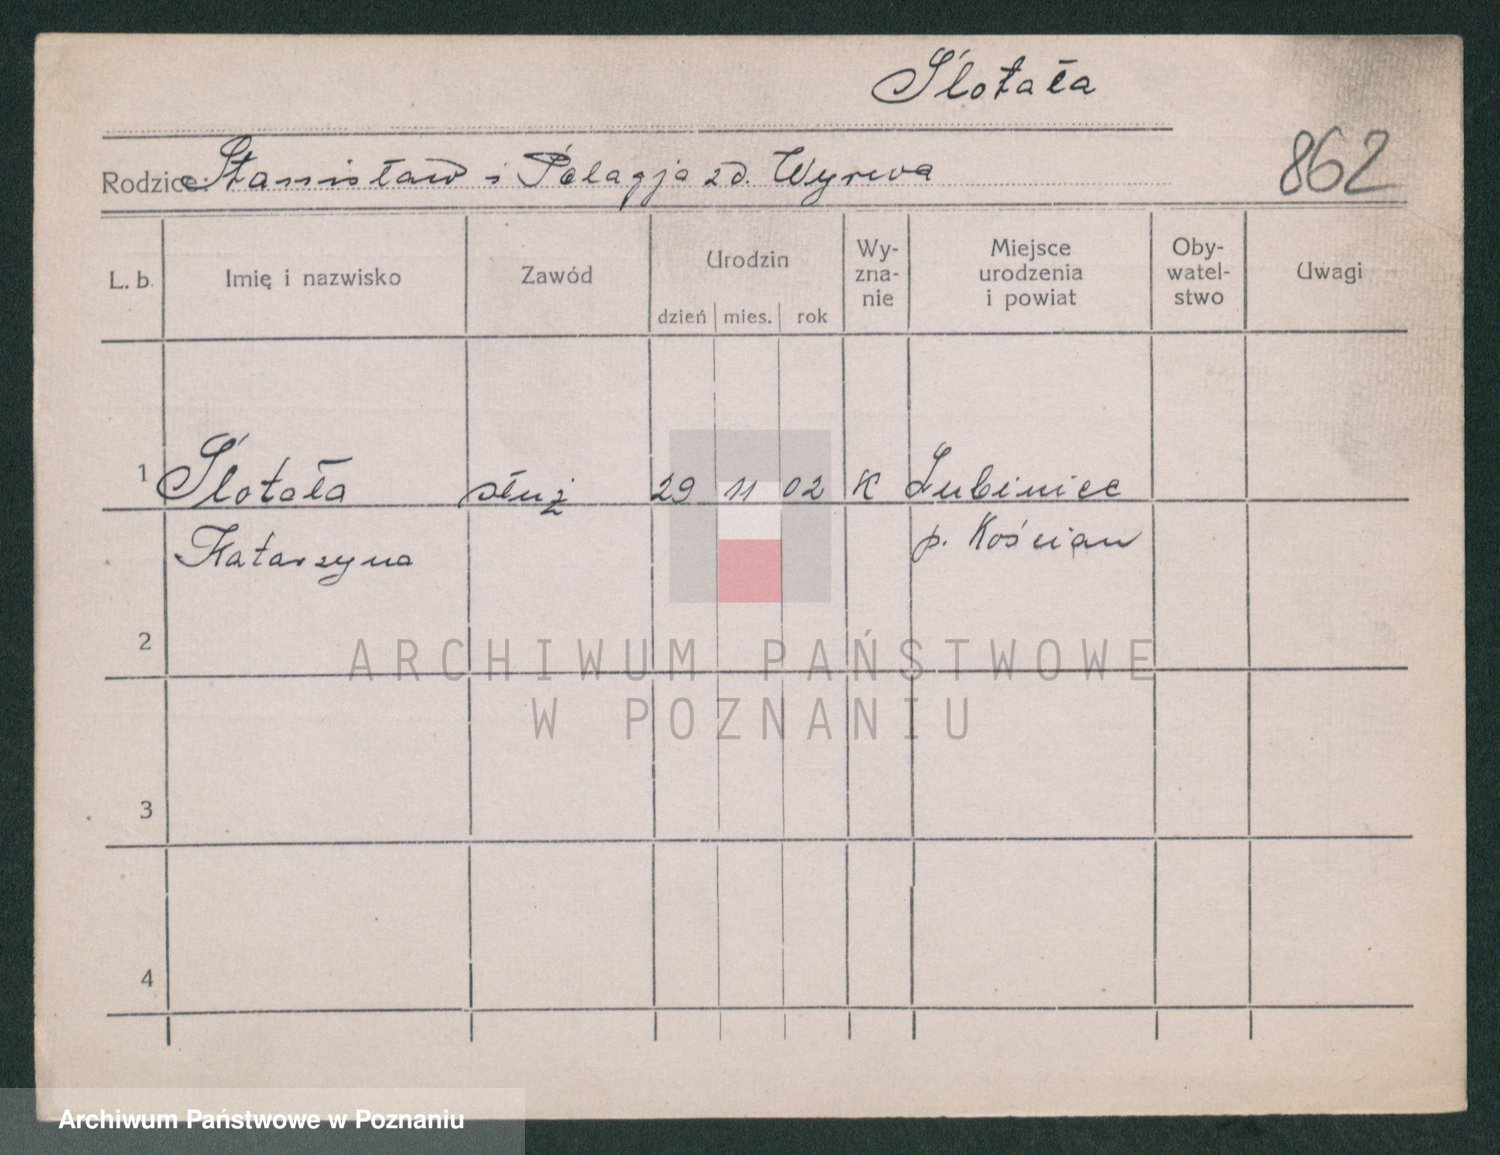 Ślotała
Rodzice: Stanisław i Pelagja zd. Wyrwa
862
L. b. Imię i nazwisko Zawód Urodzin Wy-zna-nie Miejsce urodzenia i powiat Oby-watel-stwo Uwagi
dzień mies. rok
1 Ślotała służ 29 11 02 K Lubiniec
Katarzyna p. Kościan
2
3
4
ARCHIWUM PAŃSTWOWE
W POZNANIU
Archiwum Państwowe w Poznaniu